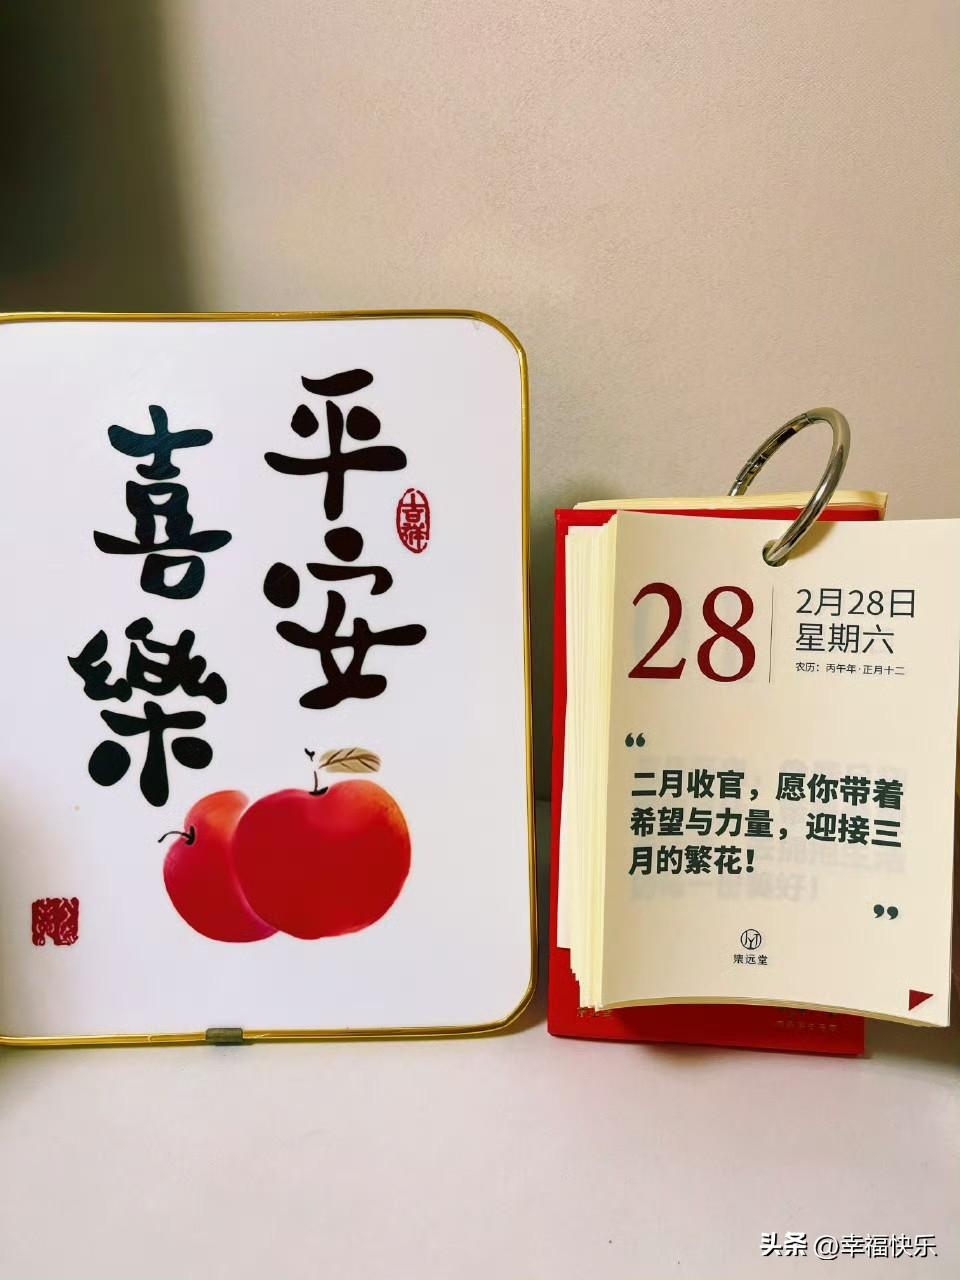 平安
喜樂
吉祥
28
2月28日
星期六
农历：丙午年·正月十二
“
二月收官，愿你带着
希望与力量，迎接三
月的繁花！
”
头条 @幸福快乐